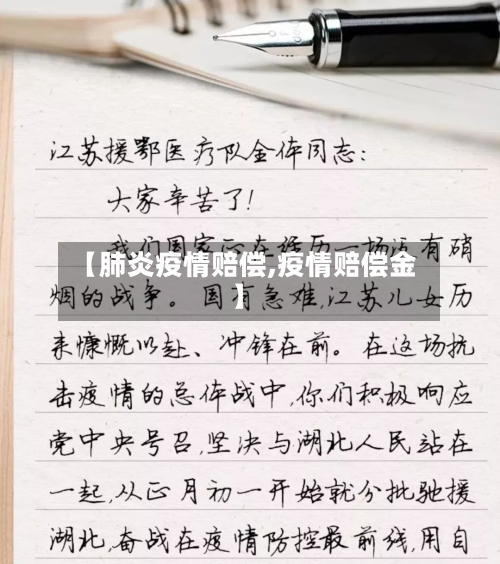 江苏援鄂医疗队全体同志：
大家辛苦了！
我们国家正在经历一场没有硝
【肺炎疫情赔偿,疫情赔偿金
】
烟的战争。国有急难,江苏儿女历
来慷慨以赴、冲锋在前。在这场抗
击疫情的总体战中,你们积极响应
党中央号召,坚决与湖北人民站在
一起,从正月初一开始就分批驰援
湖北,奋战在疫情防控最前线,用自